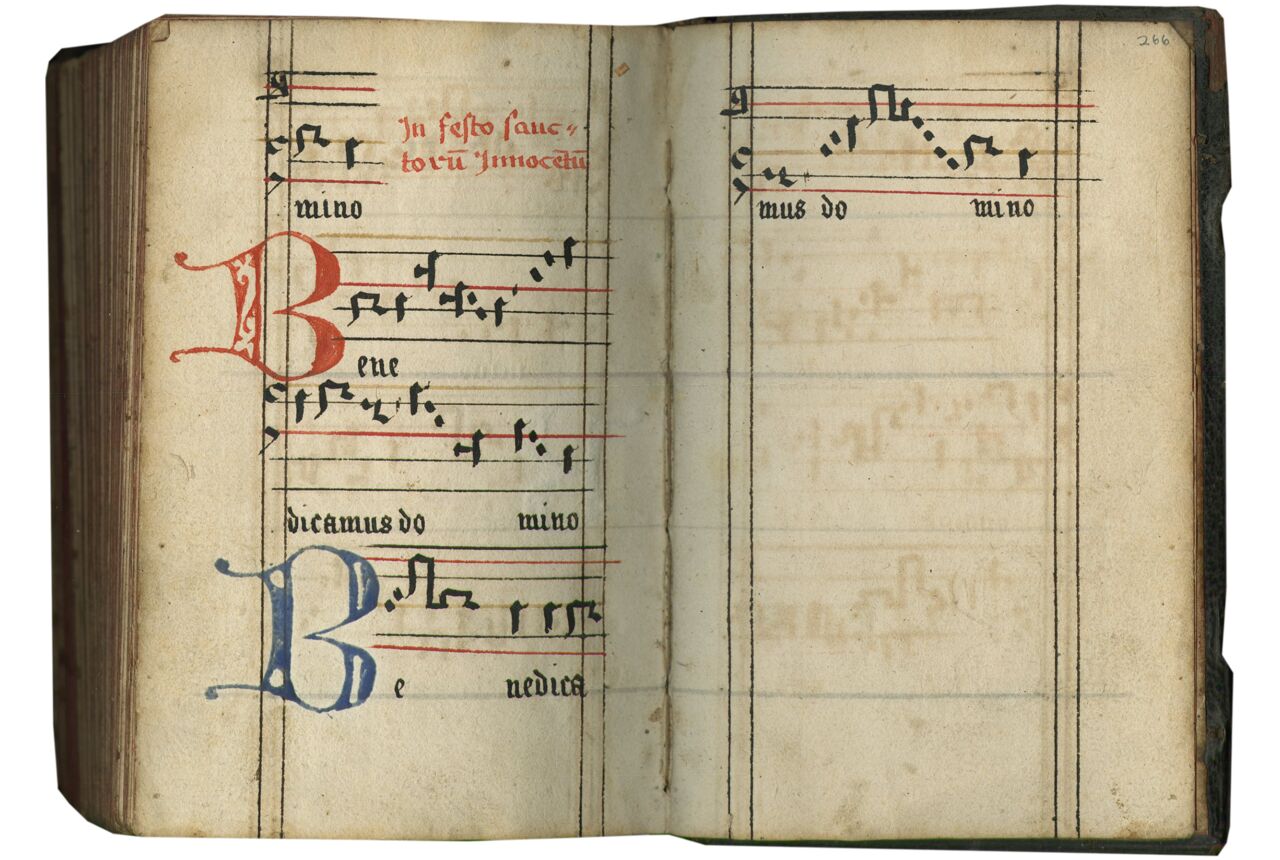 In festo sanc⸗
torū Innocētū
mino
Bene
dicamus do mino
Be nedica
266
mus do mino